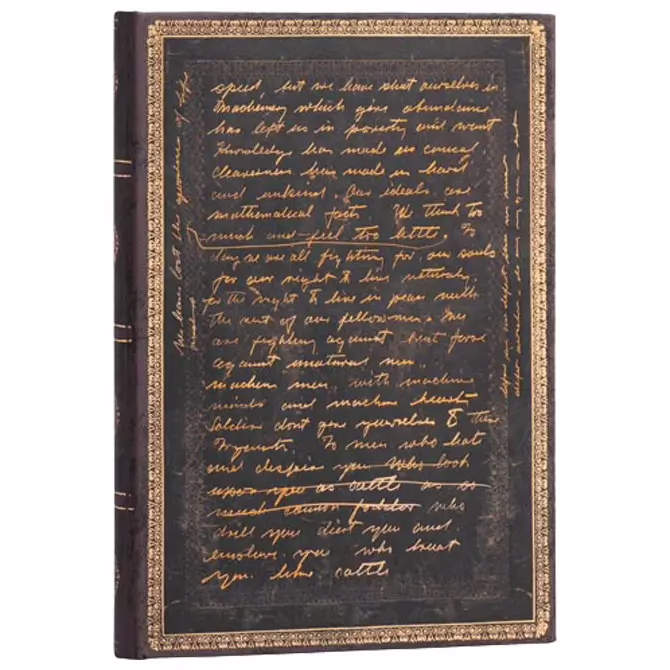 speed, but we have shut ourselves in
Machinery which gives abundance
has left us in poverty and want
Knowledge has made us cynical
cleaverness has made us hard
and unkind. Our ideals are
mathematical facts. We think too
much and feel too little. To
day we are all fighting for our souls
for our right to live naturally
for the right to live in peace with
the rest of our fellowmen. We
are fighting against brut force
against unatural men.
machine men, with machine
minds and machine hearts
Soldiers dont give yourselves to these
To men who hate
and despise you who look
upon you as cattle as so
much cannon fodder who
drill you diet you and
enslave you who treat
you like cattle
we have lost the of life